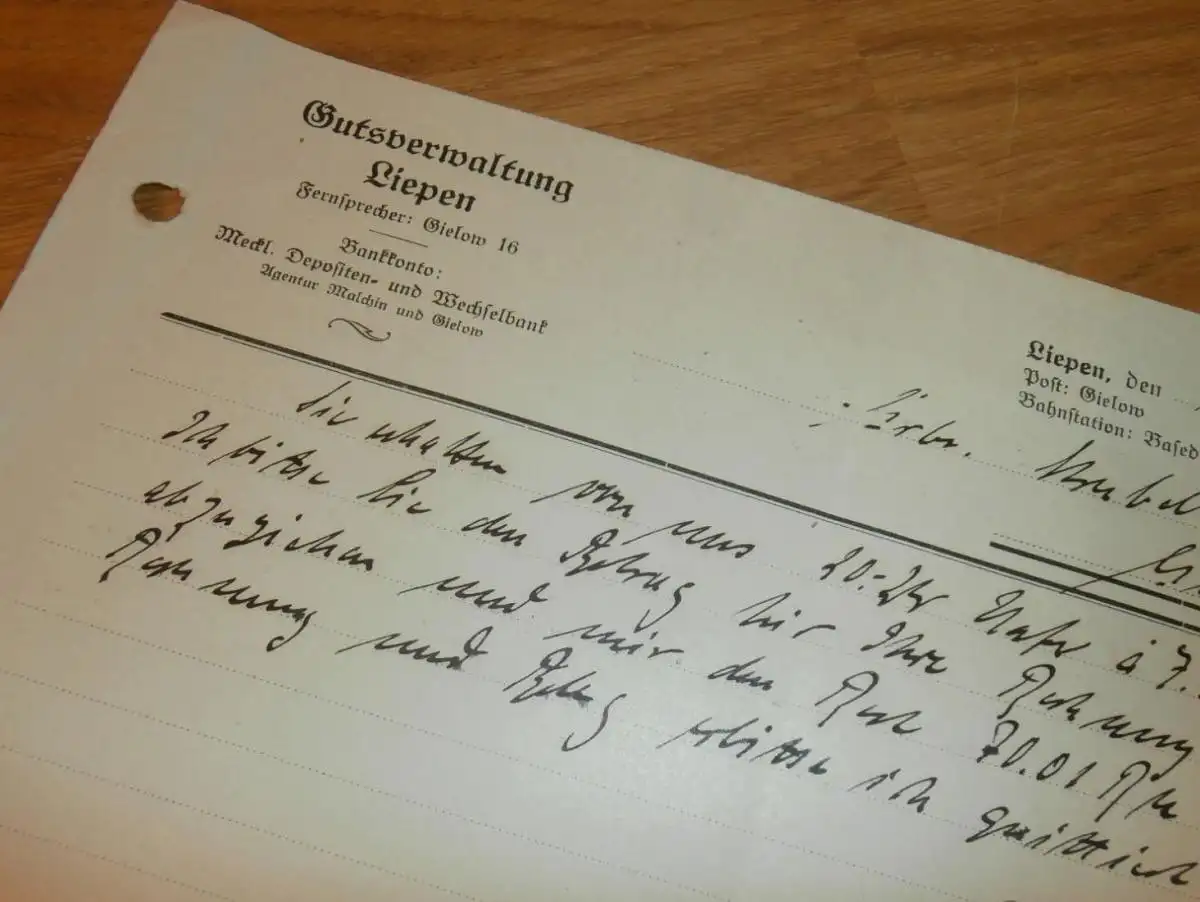 Gutsverwaltung
Liepen
Fernsprecher: Gielow 16
Bankkonto:
Meckl. Depositen- und Wechselbank
Agentur Malchin und Gielow
Liepen, den
Post: Gielow
Bahnstation: Based
Sie erhalten von uns 20.- Ztr Hafer à 7.
Ich bitte Sie den Betrag für Ihre Rechnung
abzuziehen und mir den Rest 70.01 RM
Rechnung und Beleg erbitte ich quittiert